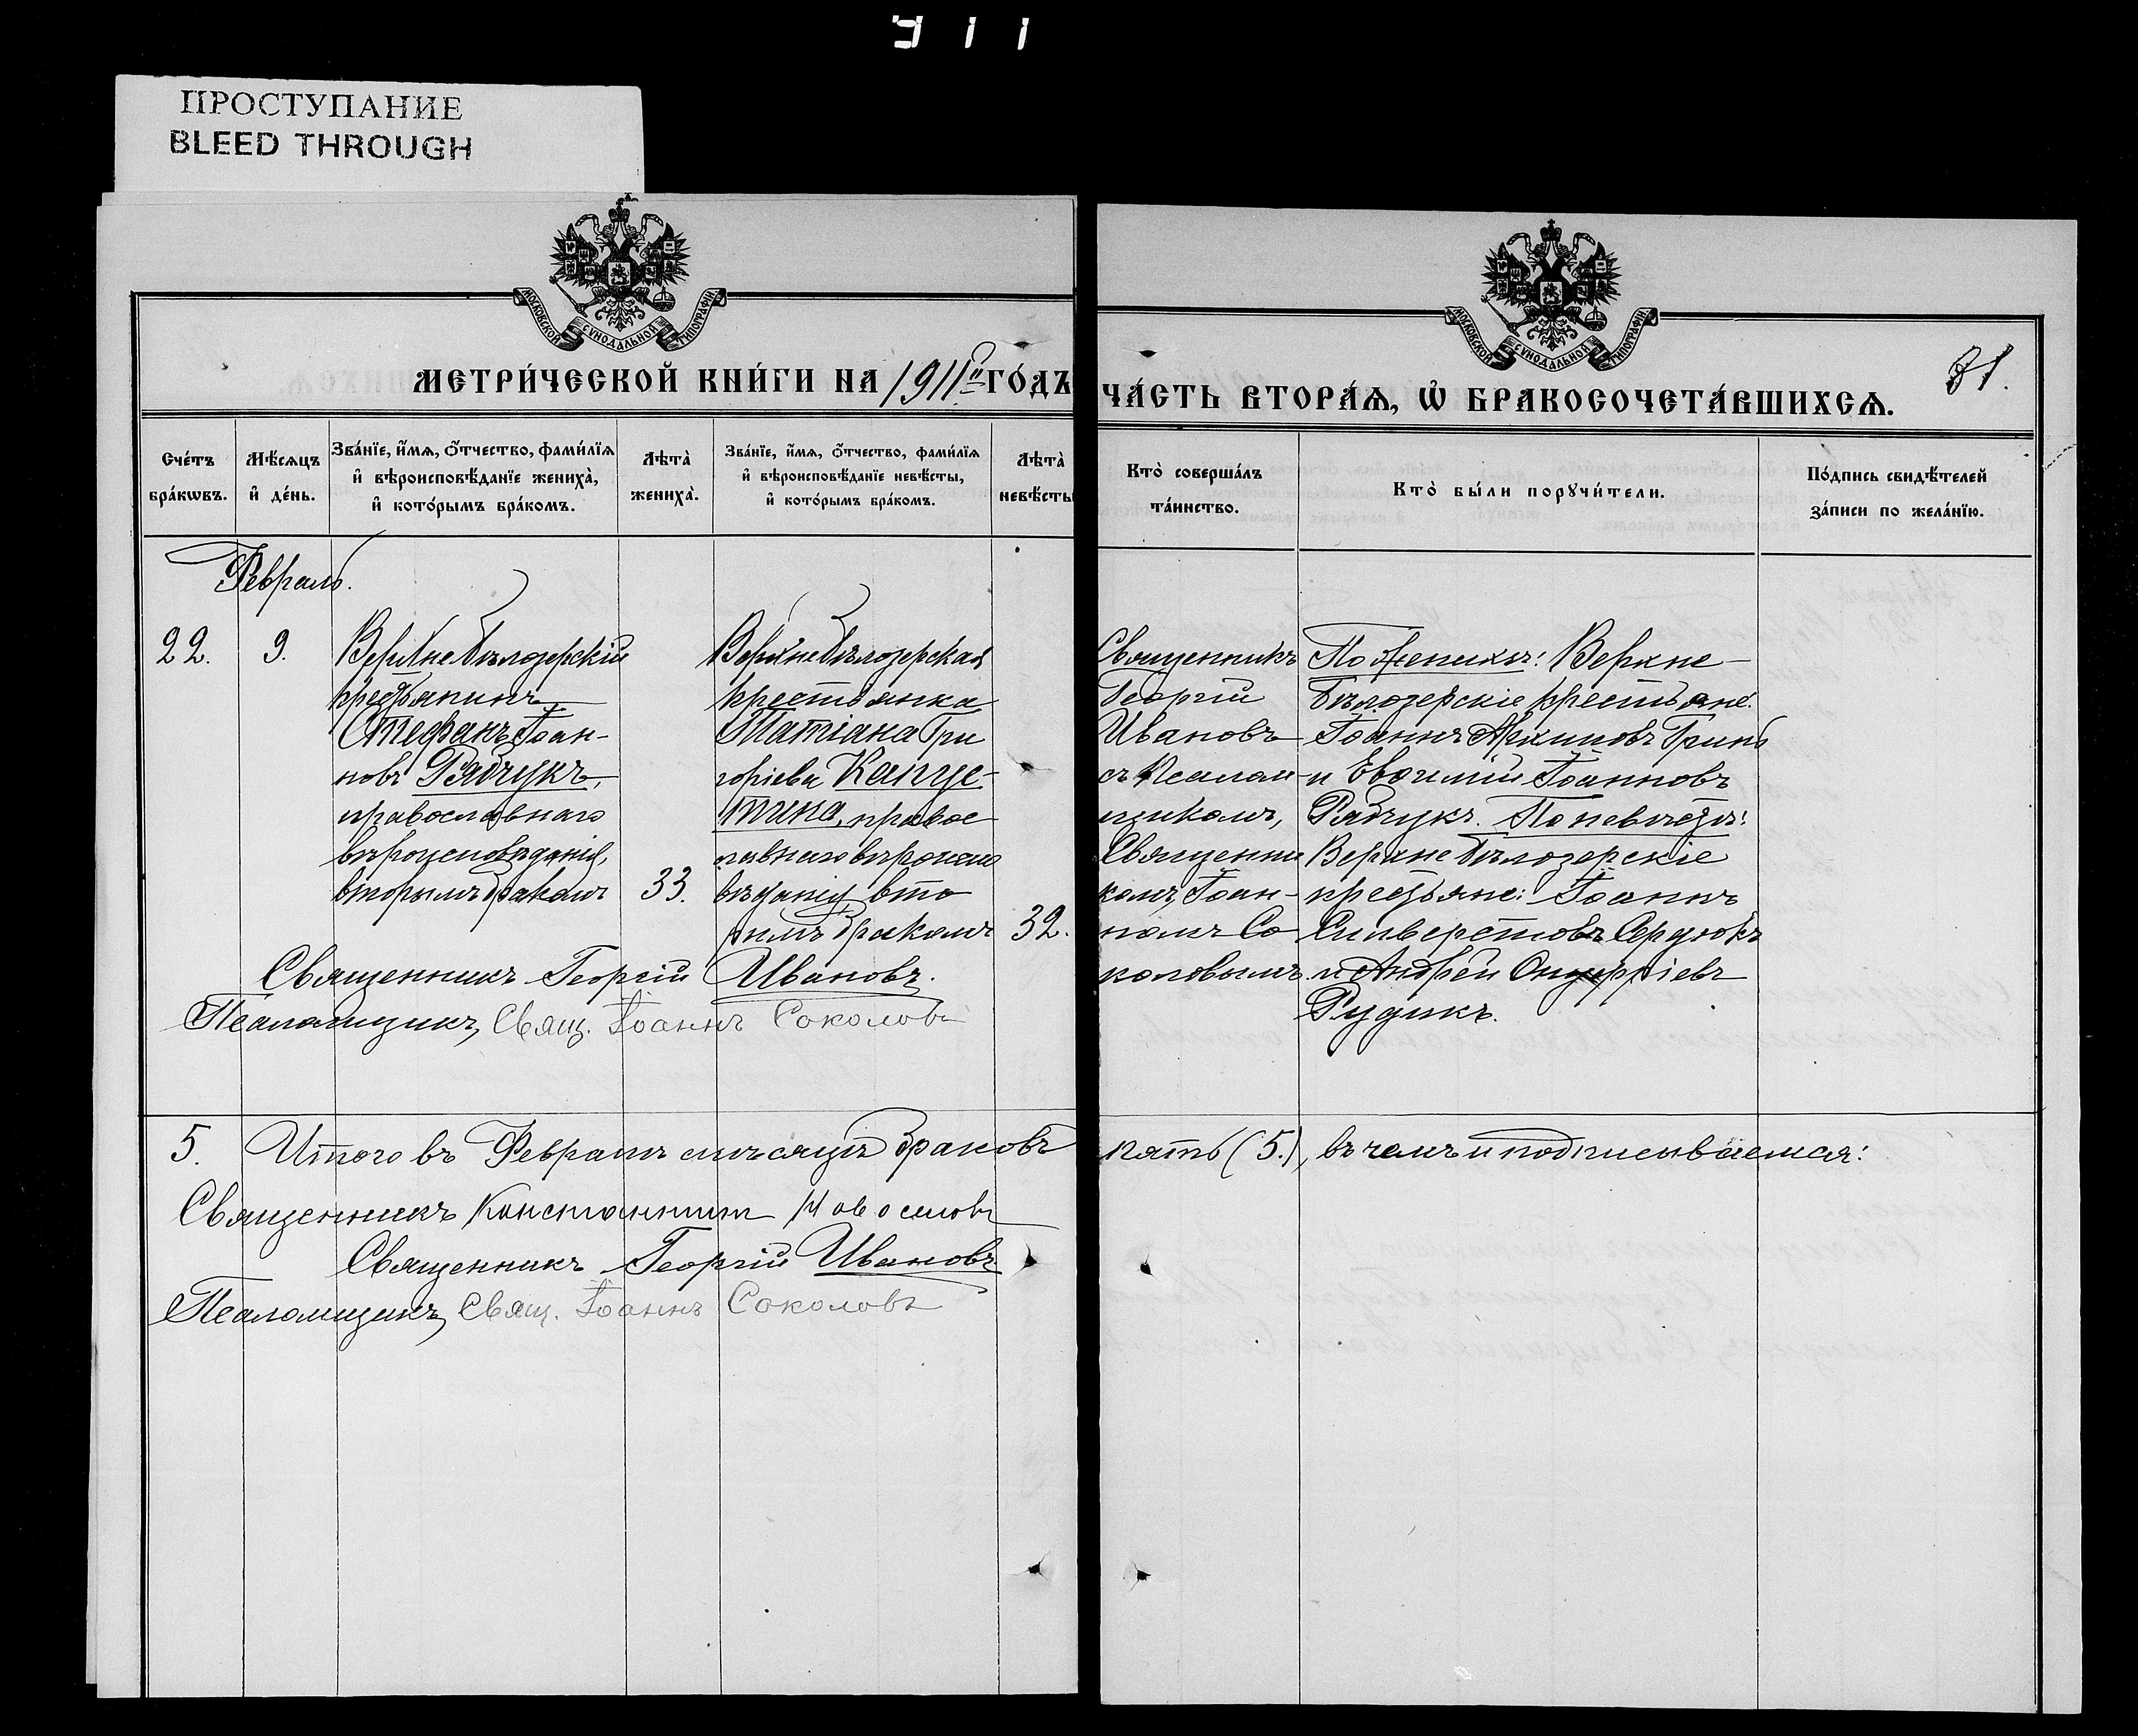 911
ПРОСТУПАНИЕ
BLEED THROUGH
МОСКОВСКОЙ СѴНОДАЛЬНОЙ ТИПОГРАФІИ
МОСКОВСКОЙ СѴНОДАЛЬНОЙ ТИПОГРАФІИ
МЕТРИ́ЧЕСКОЙ КНИ́ГИ НА 1911й ГО́ДЪ
ЧА́СТЬ ВТОРА́Ѧ, Ѡ БРАКОСОЧЕТА́ВШИХСѦ.
81.
Сче́тъ
бра́кѡвъ.
Мѣ́сѧцъ
и де́нь.
Зва́нїе, и́мѧ, о́тчество, фами́лїѧ
и вѣроисповѣ́данїе жениха̀,
и кото́рымъ бра́комъ.
Лѣта̀
жениха̀.
Зва́нїе, и́мѧ, о́тчество, фами́лїѧ
и вѣроисповѣ́данїе невѣ́сты,
и кото́рымъ бра́комъ.
Лѣта̀
невѣ́сты
Кто̀ соверша́лъ
та́инство.
Кто̀ бы́ли порꙋчи́тели.
По́дпись свидѣ́телей
за́писи по жела́нїю.
Февраль.
22.
9.
Верхнебѣлозерскій
крестьянинъ
Стефанъ Іоан-
новъ Рябчукъ,
православнаго
вѣроисповѣданія,
вторымъ бракомъ
33.
Верхнебѣлозерская
крестьянка
Татіана Гри
горіева Капце-
тина, правос
лавнаго вѣроиспо
вѣданія, вто
рымъ бракомъ
32.
Священникъ
Георгій
Ивановъ
съ Псалом-
щикомъ,
Священни
комъ Іоан-
номъ Со
коловымъ.
По женихѣ: Верхне-
бѣлозерскіе крестьяне:
Іоаннъ Архиповъ Гринь
и Евѳимій Іоанновъ
Рябчукъ. По невѣстѣ:
Верхнебѣлозерскіе
крестьяне: Іоаннъ
Сильверстовъ Сердюкъ
и Андрей Онуфріевъ
Рудикъ.
Священникъ Георгій Ивановъ.
Псаломщикъ, Свящ. Іоаннъ Соколовъ
5. Итого въ Февралѣ мѣсяцѣ браковъ пять (5.), въ чемъ и подписываемся:
Священникъ Константинъ Новосиловъ
Священникъ Георгій Ивановъ
Псаломщикъ, Свящ. Іоаннъ Соколовъ